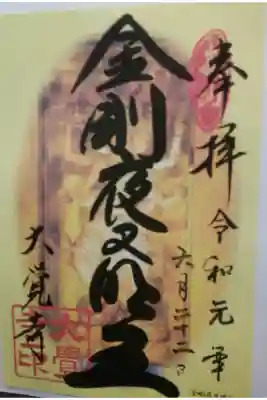 奉拝 令和元年
六月二十二日
金剛夜叉明王
大覚寺